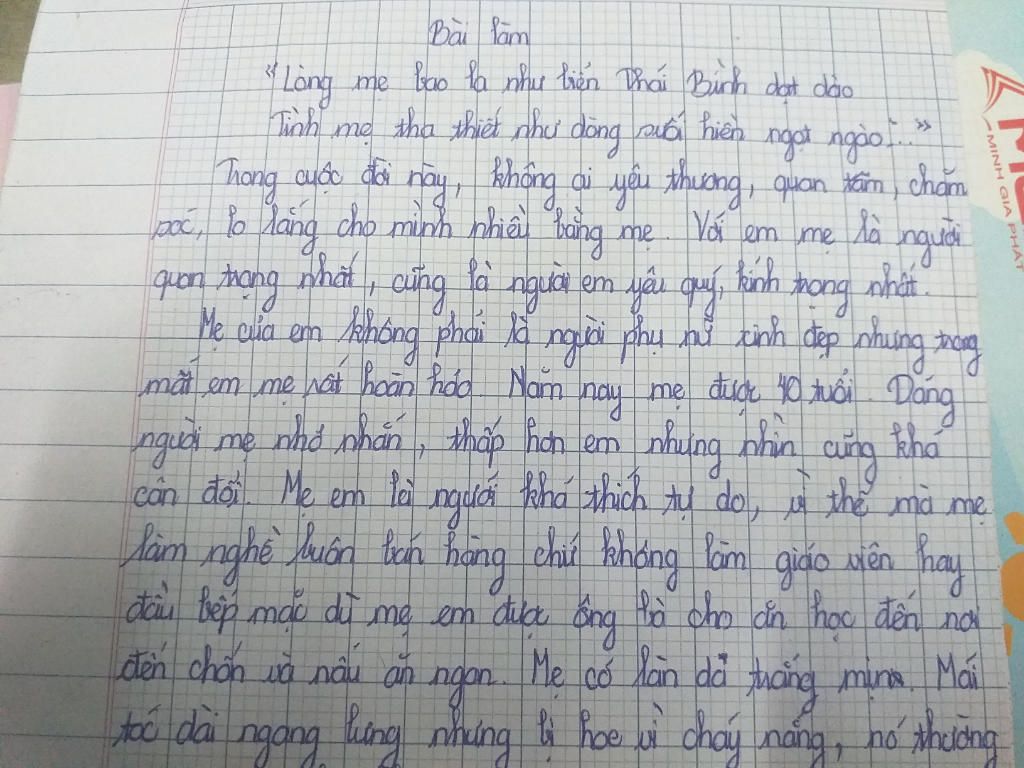 Bài làm
"Lòng mẹ bao la như biển Thái Bình dạt dào
Tình mẹ tha thiết như dòng suối hiền ngọt ngào..."
Trong cuộc đời này, không ai yêu thương, quan tâm, chăm
sóc, lo lắng cho mình nhiều bằng mẹ. Với em mẹ là người
quan trọng nhất, cũng là người em yêu quý, kính trọng nhất.
Mẹ của em không phải là người phụ nữ xinh đẹp nhưng trong
mắt em mẹ rất hoàn hảo. Năm nay mẹ được 40 tuổi. Dáng
người mẹ nhỏ nhắn, thấp hơn em nhưng nhìn cũng khá
cân đối. Mẹ em là người khá thích tự do, vì thế mà mẹ
làm nghề buôn bán hàng chứ không làm giáo viên hay
đầu bếp mặc dù mẹ em được ông bà cho ăn học đến nơi
đến chốn và nấu ăn ngon. Mẹ có làn da trắng mịn. Mái
tóc dài ngang lưng nhưng bị hoe vì cháy nắng, nó thường
MINH GIA PHÁT